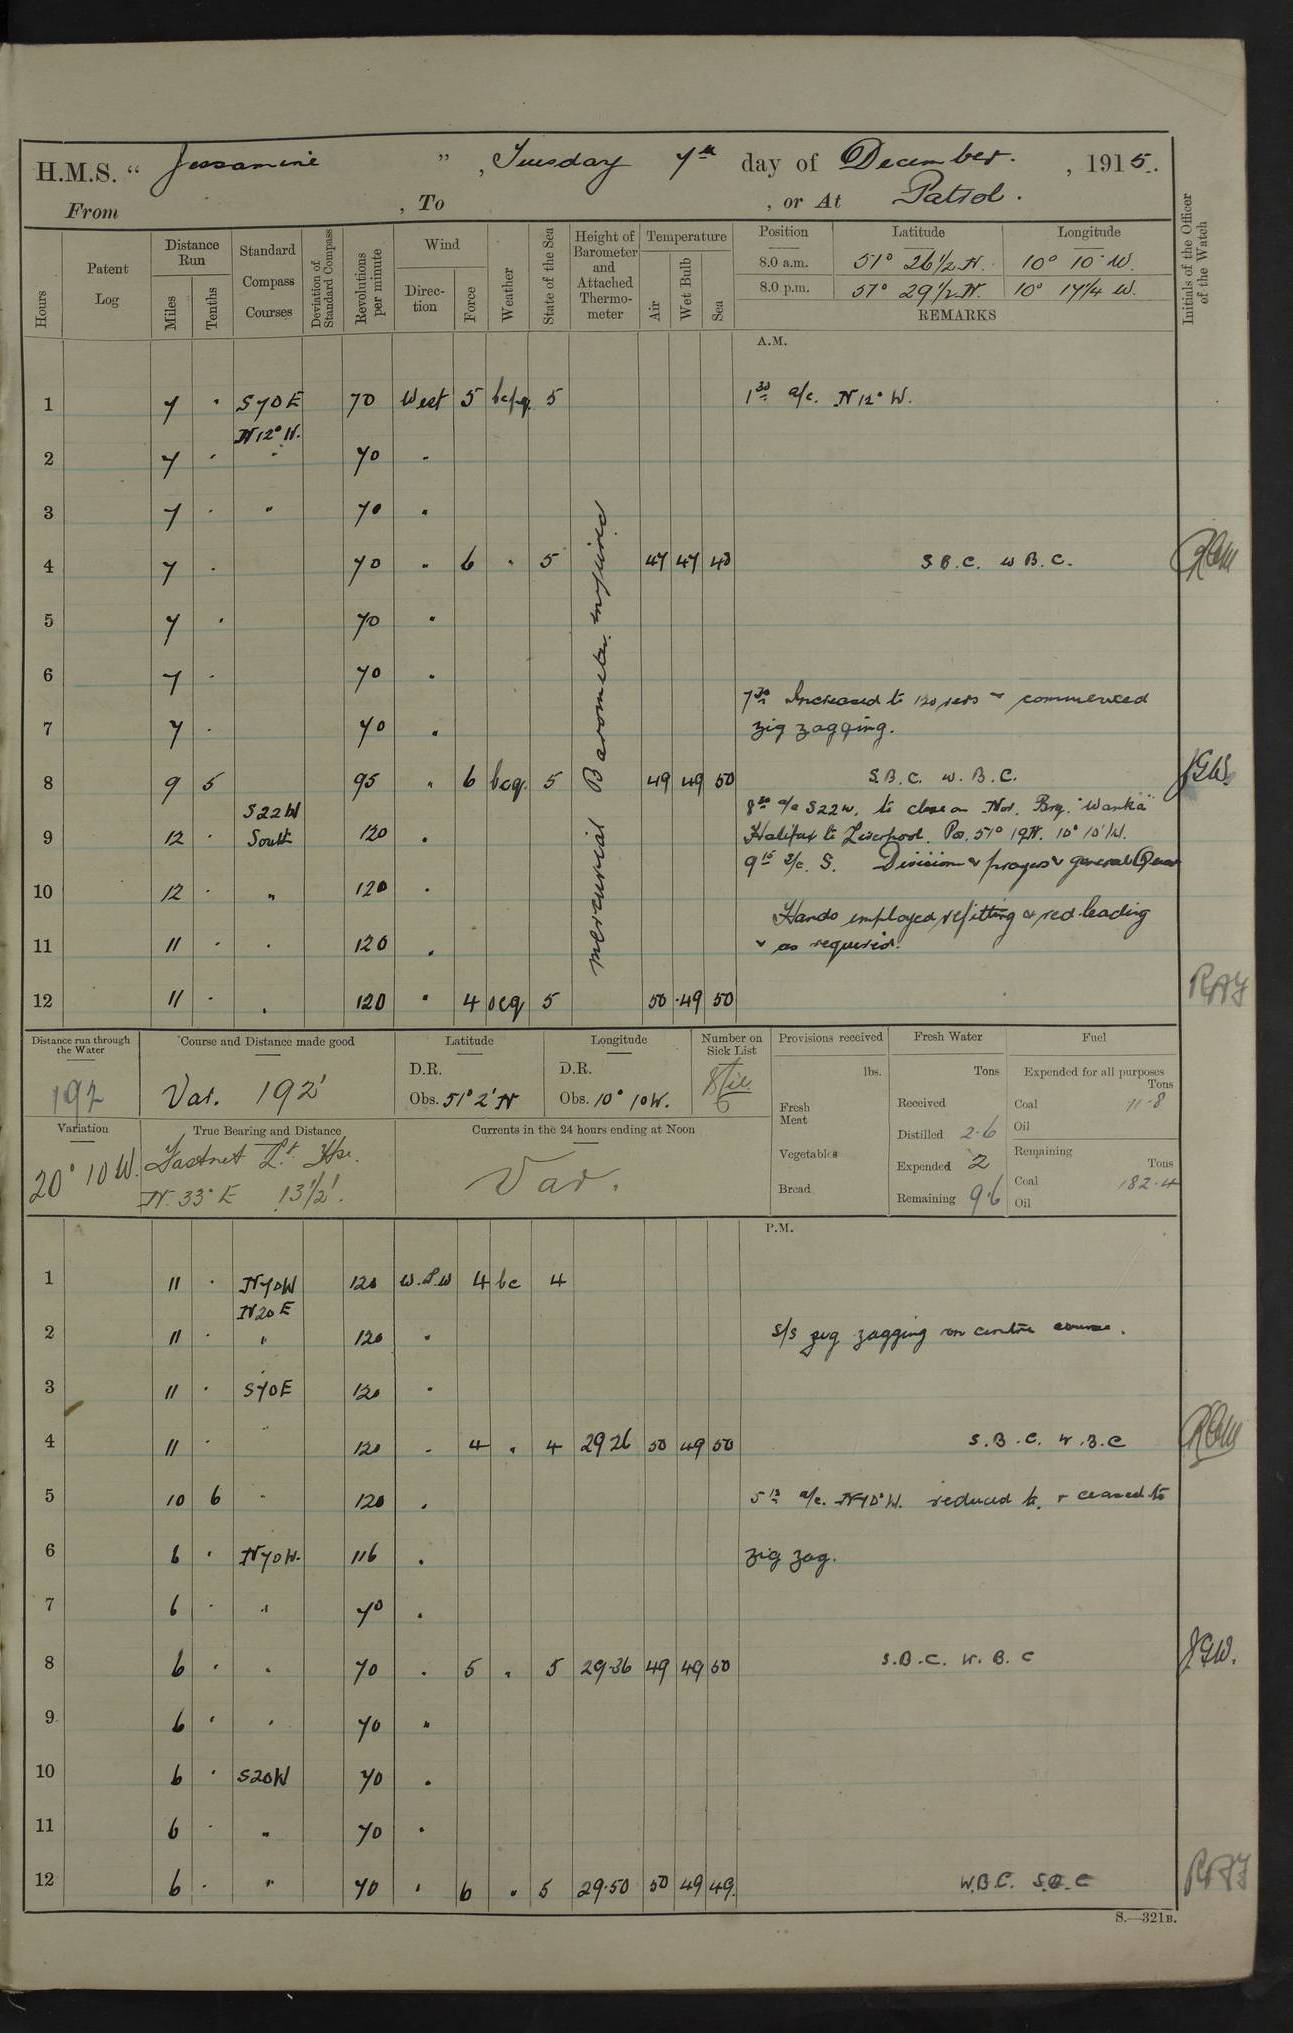 H.M.S. “ Jessamine ” , Tuesday 7th day of December. , 1915.
From , To , or At Patrol.
Hours
Patent Log
Distance Run
Miles
Tenths
Standard Compass Courses
Deviation of Standard Compass
Revolutions per minute
Wind
Direction
Force
Weather
State of the Sea
Height of Barometer and Attached Thermometer
Temperature
Air
Wet Bulb
Sea
Position Latitude Longitude
8.0 a.m. 51° 26½ N. 10° 10' W.
8.0 p.m. 51° 29½ N. 10° 17¼ W.
REMARKS
Initials of the Officer of the Watch
A.M.
1 7 . S70E 70 West 5 5 1 30 a/c. N12°W.
N12°W.
2 7 . " 70 "
3 7 . " 70 "
4 7 . 70 " 6 " 5 47 47 48 S.B.C. W B.C.
5 7 . 70 "
6 7 . 70 "
7 30 Increased to 120 revs & commenced
7 7 . 70 " zig zagging.
8 9 5 95 " 6 bcq. 5 49 49 50 S.B.C. W.B.C. JGW.
S22W
a/c S22W. to close on Nor. Brg. "Wanka"
9 12 . South 120 " Halifax to Liverpool. Pos. 51° 19N. 10° 10'W.
9 15 a/c. S. Division & prayers & general
10 12 . " 120 "
Hands employed refitting & red leading
11 11 . " 120 " & as required.
12 11 . " 120 " 4 ocq 5 50 49 50
mercurial Barometer injured
Distance run through the Water
192
Course and Distance made good
Var. 192'
Latitude
D.R.
Obs. 51° 2' N
Longitude
D.R.
Obs. 10° 10W.
Number on Sick List
6
Variation
20° 10W.
True Bearing and Distance
Fastnet Lt. Hse.
N. 33° E 13½'.
Currents in the 24 hours ending at Noon
Var.
Provisions received
lbs.
Fresh Meat
Vegetables
Bread
Fresh Water
Tons
Received
Distilled 2.6
Expended 2
Remaining 9.6
Fuel
Expended for all purposes
Tons
Coal 11.8
Oil
Remaining
Tons
Coal 182.4
Oil
P.M.
1 11 . N70W 120 W.S.W 4 bc 4
N20E
2 11 . " 120 " S/S zig zagging on centre course.
3 11 . S70E 120 "
4 11 . " 120 " 4 " 4 29.26 50 49 50 S.B.C. W.B.C
5 10 6 " 120 " 5 13 a/c. N70°W. reduced to, & ceased to
6 6 . N70W. 116 " zig zag.
7 6 . " 70 "
8 6 . " 70 " 5 " 5 29.36 49 49 50 S.B.C. W.B.C JGW.
9 6 . " 70 "
10 6 . S20W 70 "
11 6 . " 70 "
12 6 . " 70 " 6 " 5 29.50 50 49 49. W.B.C. S.B.C
S.—321B.